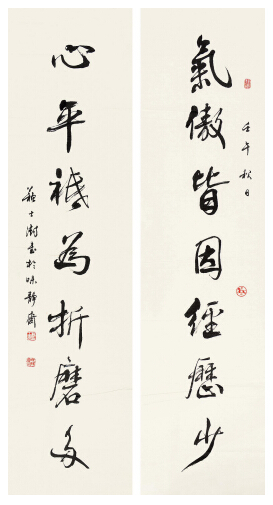 氣傲皆因經歷少
壬午秋日
心平祗為折磨多
蘇士澍書於味靜齋